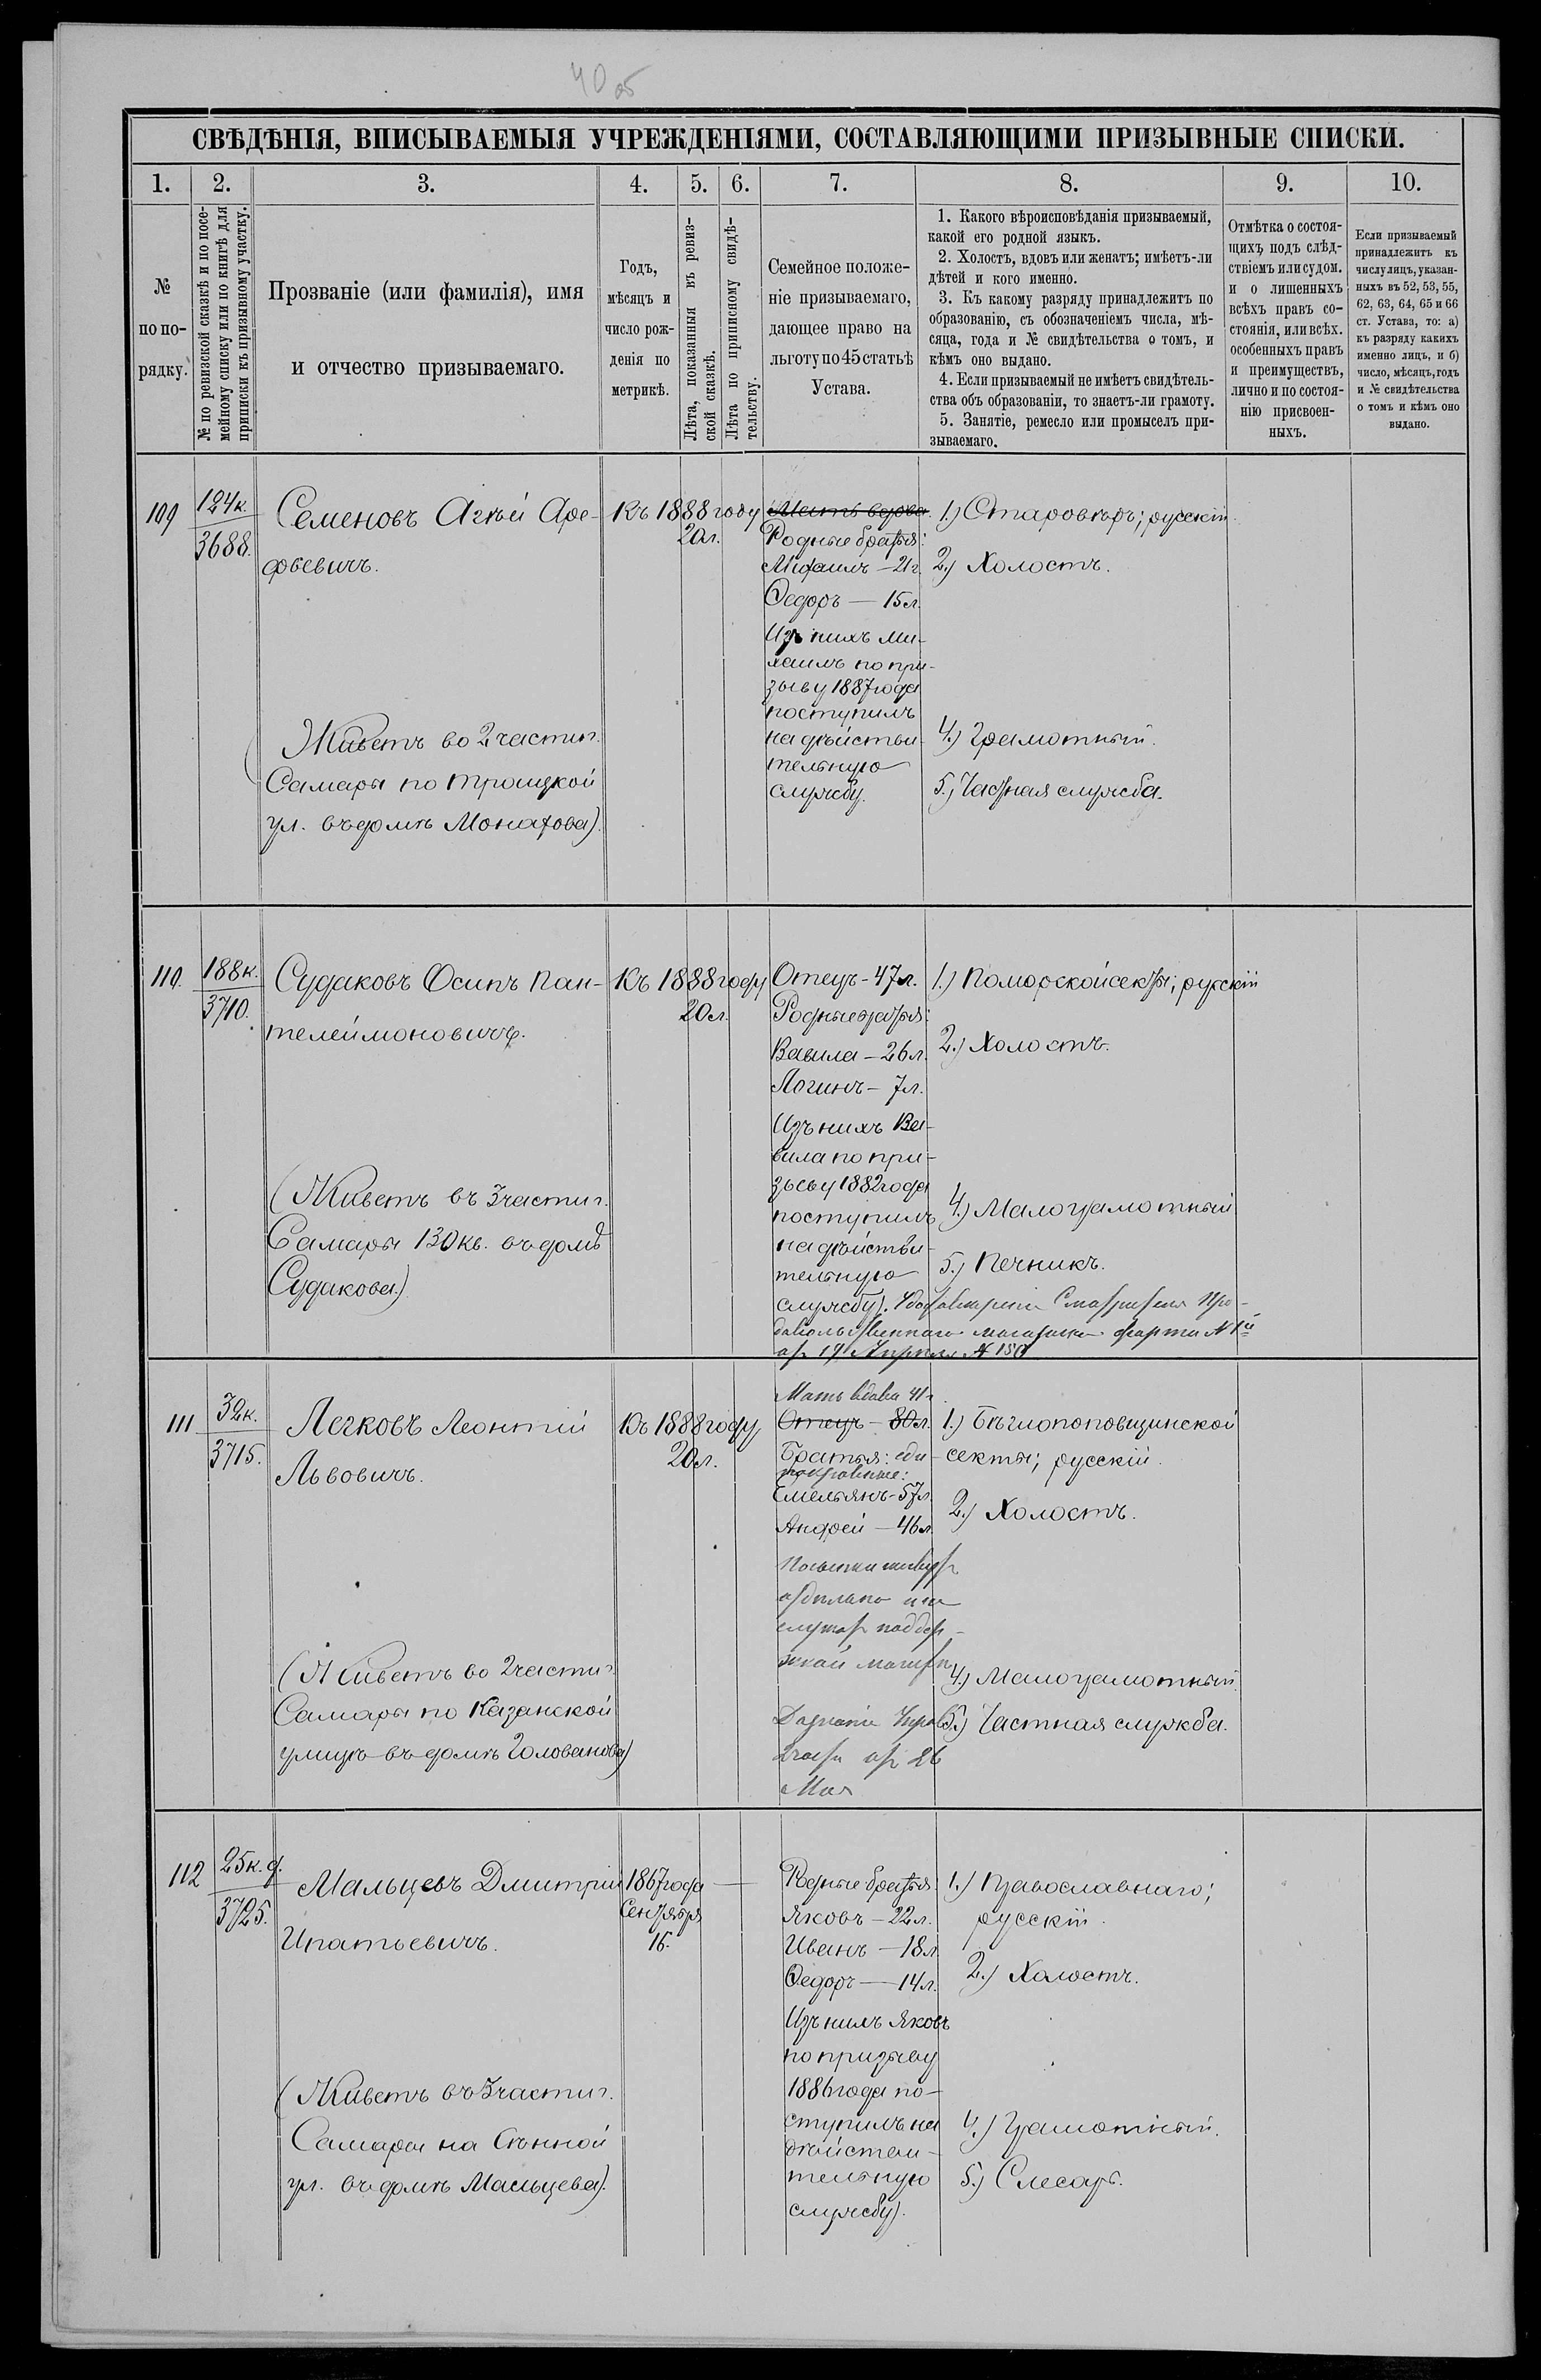 40 об
СВѢДѢНІЯ, ВПИСЫВАЕМЫЯ УЧРЕЖДЕНІЯМИ, СОСТАВЛЯЮЩИМИ ПРИЗЫВНЫЕ СПИСКИ.
1. 2. 3. 4. 5. 6. 7. 8. 9. 10.
№
по по-
рядку.
№ по ревизской сказкѣ и по посе-
мейному списку или по книгѣ для
приписки къ призывному участку.
Прозваніе (или фамилія), имя
и отчество призываемаго.
Годъ,
мѣсяцъ и
число рож-
денія по
метрикѣ.
Лѣта, показанныя въ ревиз-
ской сказкѣ.
Лѣта по приписному свидѣ-
тельству.
Семейное положе-
ніе призываемаго,
дающее право на
льготу по 45 статьѣ
Устава.
1. Какого вѣроисповѣданія призываемый,
какой его родной языкъ.
2. Холостъ, вдовъ или женатъ; имѣетъ-ли
дѣтей и кого именно.
3. Къ какому разряду принадлежитъ по
образованію, съ обозначеніемъ числа, мѣ-
сяца, года и № свидѣтельства о томъ, и
кѣмъ оно выдано.
4. Если призываемый не имѣетъ свидѣтель-
ства объ образованіи, то знаетъ-ли грамоту.
5. Занятіе, ремесло или промыселъ при-
зываемаго.
Отмѣтка о состоя-
щихъ подъ слѣд-
ствіемъ или судом.
и о лишенныхъ
всѣхъ правъ со-
стоянія, или всѣх.
особенныхъ правъ
и преимуществъ,
лично и по состоя-
нію присвоен-
ныхъ.
Если призываемый
принадлежитъ къ
числу лицъ, указан-
ныхъ въ 52, 53, 55,
62, 63, 64, 65 и 66
ст. Устава, то: а)
къ разряду какихъ
именно лицъ, и б)
число, мѣсяцъ, годъ
и № свидѣтельства
о томъ и кѣмъ оно
выдано.
109
124к.
3688.
Семеновъ Агѣй Аре-
фьевичъ.
(Живетъ во 2 части г.
Самары по Троицкой
ул. въ домѣ Монахова).
Къ 1888 году
20 л.
Мать вдова.
Родные братья:
Михаилъ — 21 г.
Федоръ — 15 л.
Изъ нихъ Ми-
хаилъ по при-
зыву 1887 года
поступилъ
на дѣйстви-
тельную
службу.
1.) Старовѣръ; русскій.
2.) Холостъ.
4.) Грамотный.
5.) Частная служба.
110.
188к.
3710.
Судаковъ Осипъ Пан-
телеймоновичъ.
(Живетъ въ 3 части г.
Самары 130 кв. въ домѣ
Судакова.)
Къ 1888 году
20 л.
Отецъ - 47 л.
Родные братья:
Вавила — 26 л.
Логинъ — 7 л.
Изъ нихъ Ва-
вила по при-
зыву 1882 года
поступилъ
на дѣйстви-
тельную
службу). Удостовѣреніе Смотрителя Про-
довольственнаго магазина
от 19 Апрѣля № 150
1.) Поморской секты; русскій
2.) Холостъ.
4.) Малограмотный
5.) Печникъ.
111
32к.
3715.
Легковъ Леонтій
Львовичъ.
(Живетъ во 2 части г.
Самары по Казанской
улицѣ въ домѣ Голованова)
Къ 1888 году,
20 л.
Мать вдова 41 г.
Отецъ — 80 л.
Братья: еди-
нокровные:
Емельянъ - 57 л.
Андрей — 46 л.
отдѣльно и не
служат поддер-
жкой матери
Дознаніе
2 части от 26
Мая
1.) Бѣглопоповщинской
секты; русскій.
2.) Холостъ.
4.) Малограмотный.
5.) Частная служба.
112
25к. д.
3725.
Мальцевъ Дмитрій
Ипатьевичъ.
(Живетъ въ 3 части г.
Самары на Сѣнной
ул. въ домѣ Мальцева).
1867 года
Сентября
16.
—
Родные братья:
Яковъ — 22 л.
Иванъ — 18 л.
Федоръ — 14 л.
Изъ нихъ Яковъ
по призыву
1886 года по-
ступилъ на
дѣйстви-
тельную
службу).
1.) Православнаго;
русскій.
2.) Холостъ.
4.) Грамотный.
5.) Слесарь.